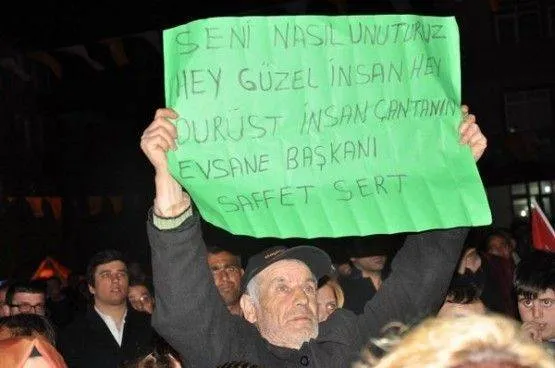 SENİ NASIL UNUTURUZ
HEY GÜZEL İNSAN HEY
DÜRÜST İNSAN ÇANTANIN
EVSANE BAŞKANI
SAFFET SERT